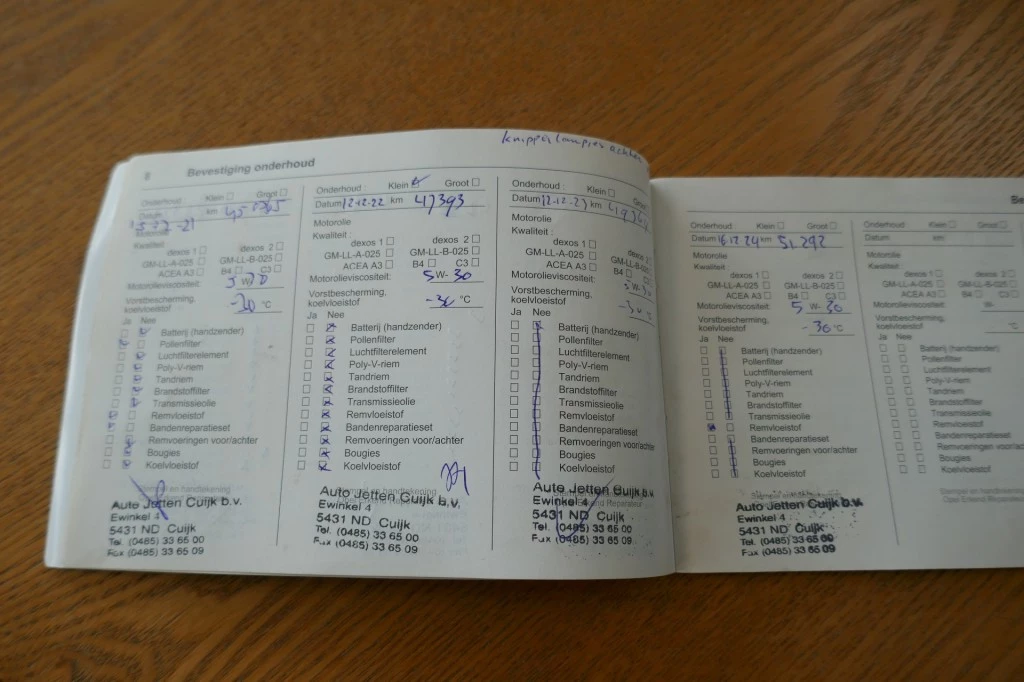 knipperlampjes achter
8 Bevestiging onderhoud
Onderhoud : Klein Groot
Datum km
Motorolie
Kwaliteit : dexos 1 dexos 2
GM-LL-A-025 GM-LL-B-025
ACEA A3 B4 C3
Motorolieviscositeit: 5 W-30
Vorstbescherming,
koelvloeistof -20 °C
Ja Nee
Batterij (handzender)
Pollenfilter
Luchtfilterelement
Poly-V-riem
Tandriem
Brandstoffilter
Transmissieolie
Remvloeistof
Bandenreparatieset
Remvoeringen voor/achter
Bougies
Koelvloeistof
Stempel en handtekening
Auto Jetten Cuijk b.v.
Ewinkel 4
5431 ND Cuijk
Tel. (0485) 33 65 00
Fax (0485) 33 65 09
Onderhoud : Klein Groot
Datum 12-12-22 km 47393
Motorolie
Kwaliteit : dexos 1 dexos 2
GM-LL-A-025 GM-LL-B-025
ACEA A3 B4 C3
Motorolieviscositeit: 5 W- 30
Vorstbescherming,
koelvloeistof -30 °C
Ja Nee
Batterij (handzender)
Pollenfilter
Luchtfilterelement
Poly-V-riem
Tandriem
Brandstoffilter
Transmissieolie
Remvloeistof
Bandenreparatieset
Remvoeringen voor/achter
Bougies
Koelvloeistof
Stempel en handtekening
Opel Erkend Reparateur
Auto Jetten Cuijk b.v.
Ewinkel 4
5431 ND Cuijk
Tel. (0485) 33 65 00
Fax (0485) 33 65 09
Onderhoud : Klein Groot
Datum 12-12-23 km
Motorolie
Kwaliteit : dexos 1 dexos 2
GM-LL-A-025 GM-LL-B-025
ACEA A3 B4 C3
Motorolieviscositeit: 5 W-30
Vorstbescherming,
koelvloeistof -30 °C
Ja Nee
Batterij (handzender)
Pollenfilter
Luchtfilterelement
Poly-V-riem
Tandriem
Brandstoffilter
Transmissieolie
Remvloeistof
Bandenreparatieset
Remvoeringen voor/achter
Bougies
Koelvloeistof
Auto Jetten Cuijk b.v.
Ewinkel 4
5431 ND Cuijk
Tel. (0485) 33 65 00
Fax (0485) 33 65 09
Be
Onderhoud : Klein Groot
Datum 16.12.24 km 51.292
Motorolie
Kwaliteit dexos 1 dexos 2
GM-LL-A-025 GM-LL-B-025
ACEA A3 B4 C3
Motorolieviscositeit: 5 W- 30
Vorstbescherming,
koelvloeistof -30 °C
Ja Nee
Batterij (handzender)
Pollenfilter
Luchtfilterelement
Poly-V-riem
Tandriem
Brandstoffilter
Transmissieolie
Remvloeistof
Bandenreparatieset
Remvoeringen voor/achter
Bougies
Koelvloeistof
Stempel en handtekening
Opel Erkend Reparateur
Auto Jetten Cuijk b.v.
Ewinkel 4
5431 ND Cuijk
Tel. (0485) 33 65 00
Fax (0485) 33 65 09
Onderhoud : Klein
Datum km
Motorolie
Kwaliteit dexos 1
GM-LL-A-025 GM-LL-B
ACEA A3 B4
Motorolieviscositeit: W-
Vorstbescherming,
koelvloeistof
Ja Nee
Batterij (handzender)
Pollenfilter
Luchtfilterelement
Poly-V-riem
Tandriem
Brandstoffilter
Transmissieolie
Remvloeistof
Bandenreparatieset
Remvoeringen voor
Bougies
Koelvloeistof
Stempel en
Opel Erkend